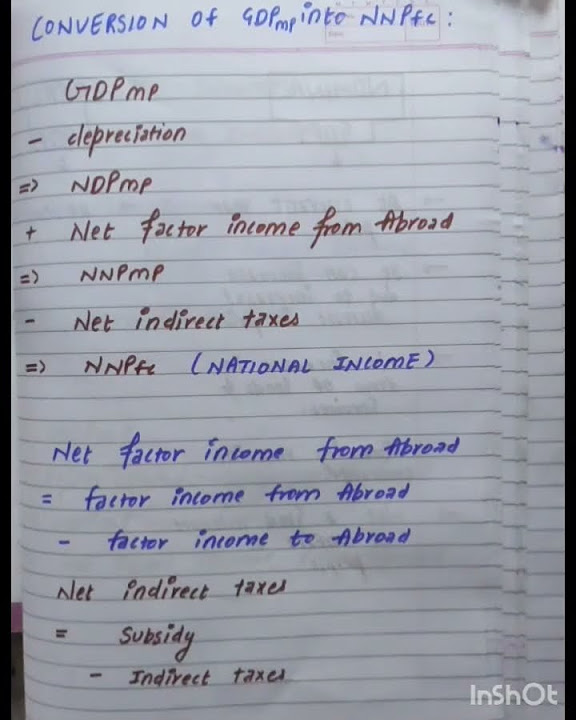 CONVERSION OF GDPmp into NNPfc :
GDPmp
- depreciation
=> NDPmp
+ Net factor income from Abroad
=> NNPmp
- Net indirect taxes
=> NNPfc (NATIONAL INCOME)
Net factor income from Abroad
= factor income from Abroad
- factor income to Abroad
Net indirect taxes
= Subsidy
- Indirect taxes
InShOt